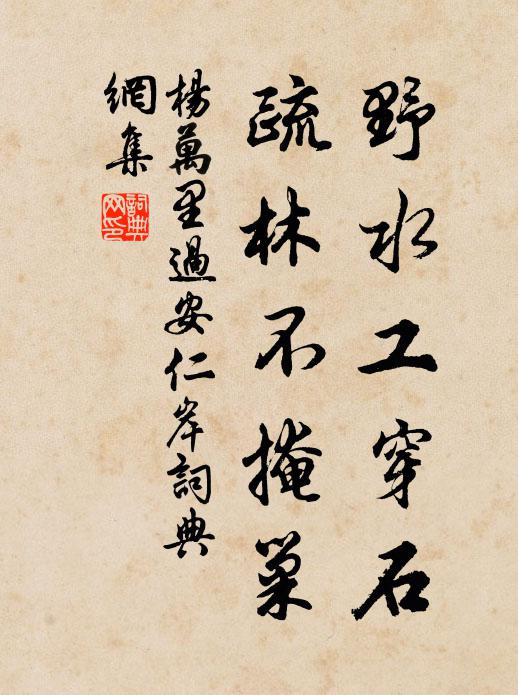 野水工穿石
疏林不掩巢
楊萬里過安仁岸詞典
網集
詞典
网印